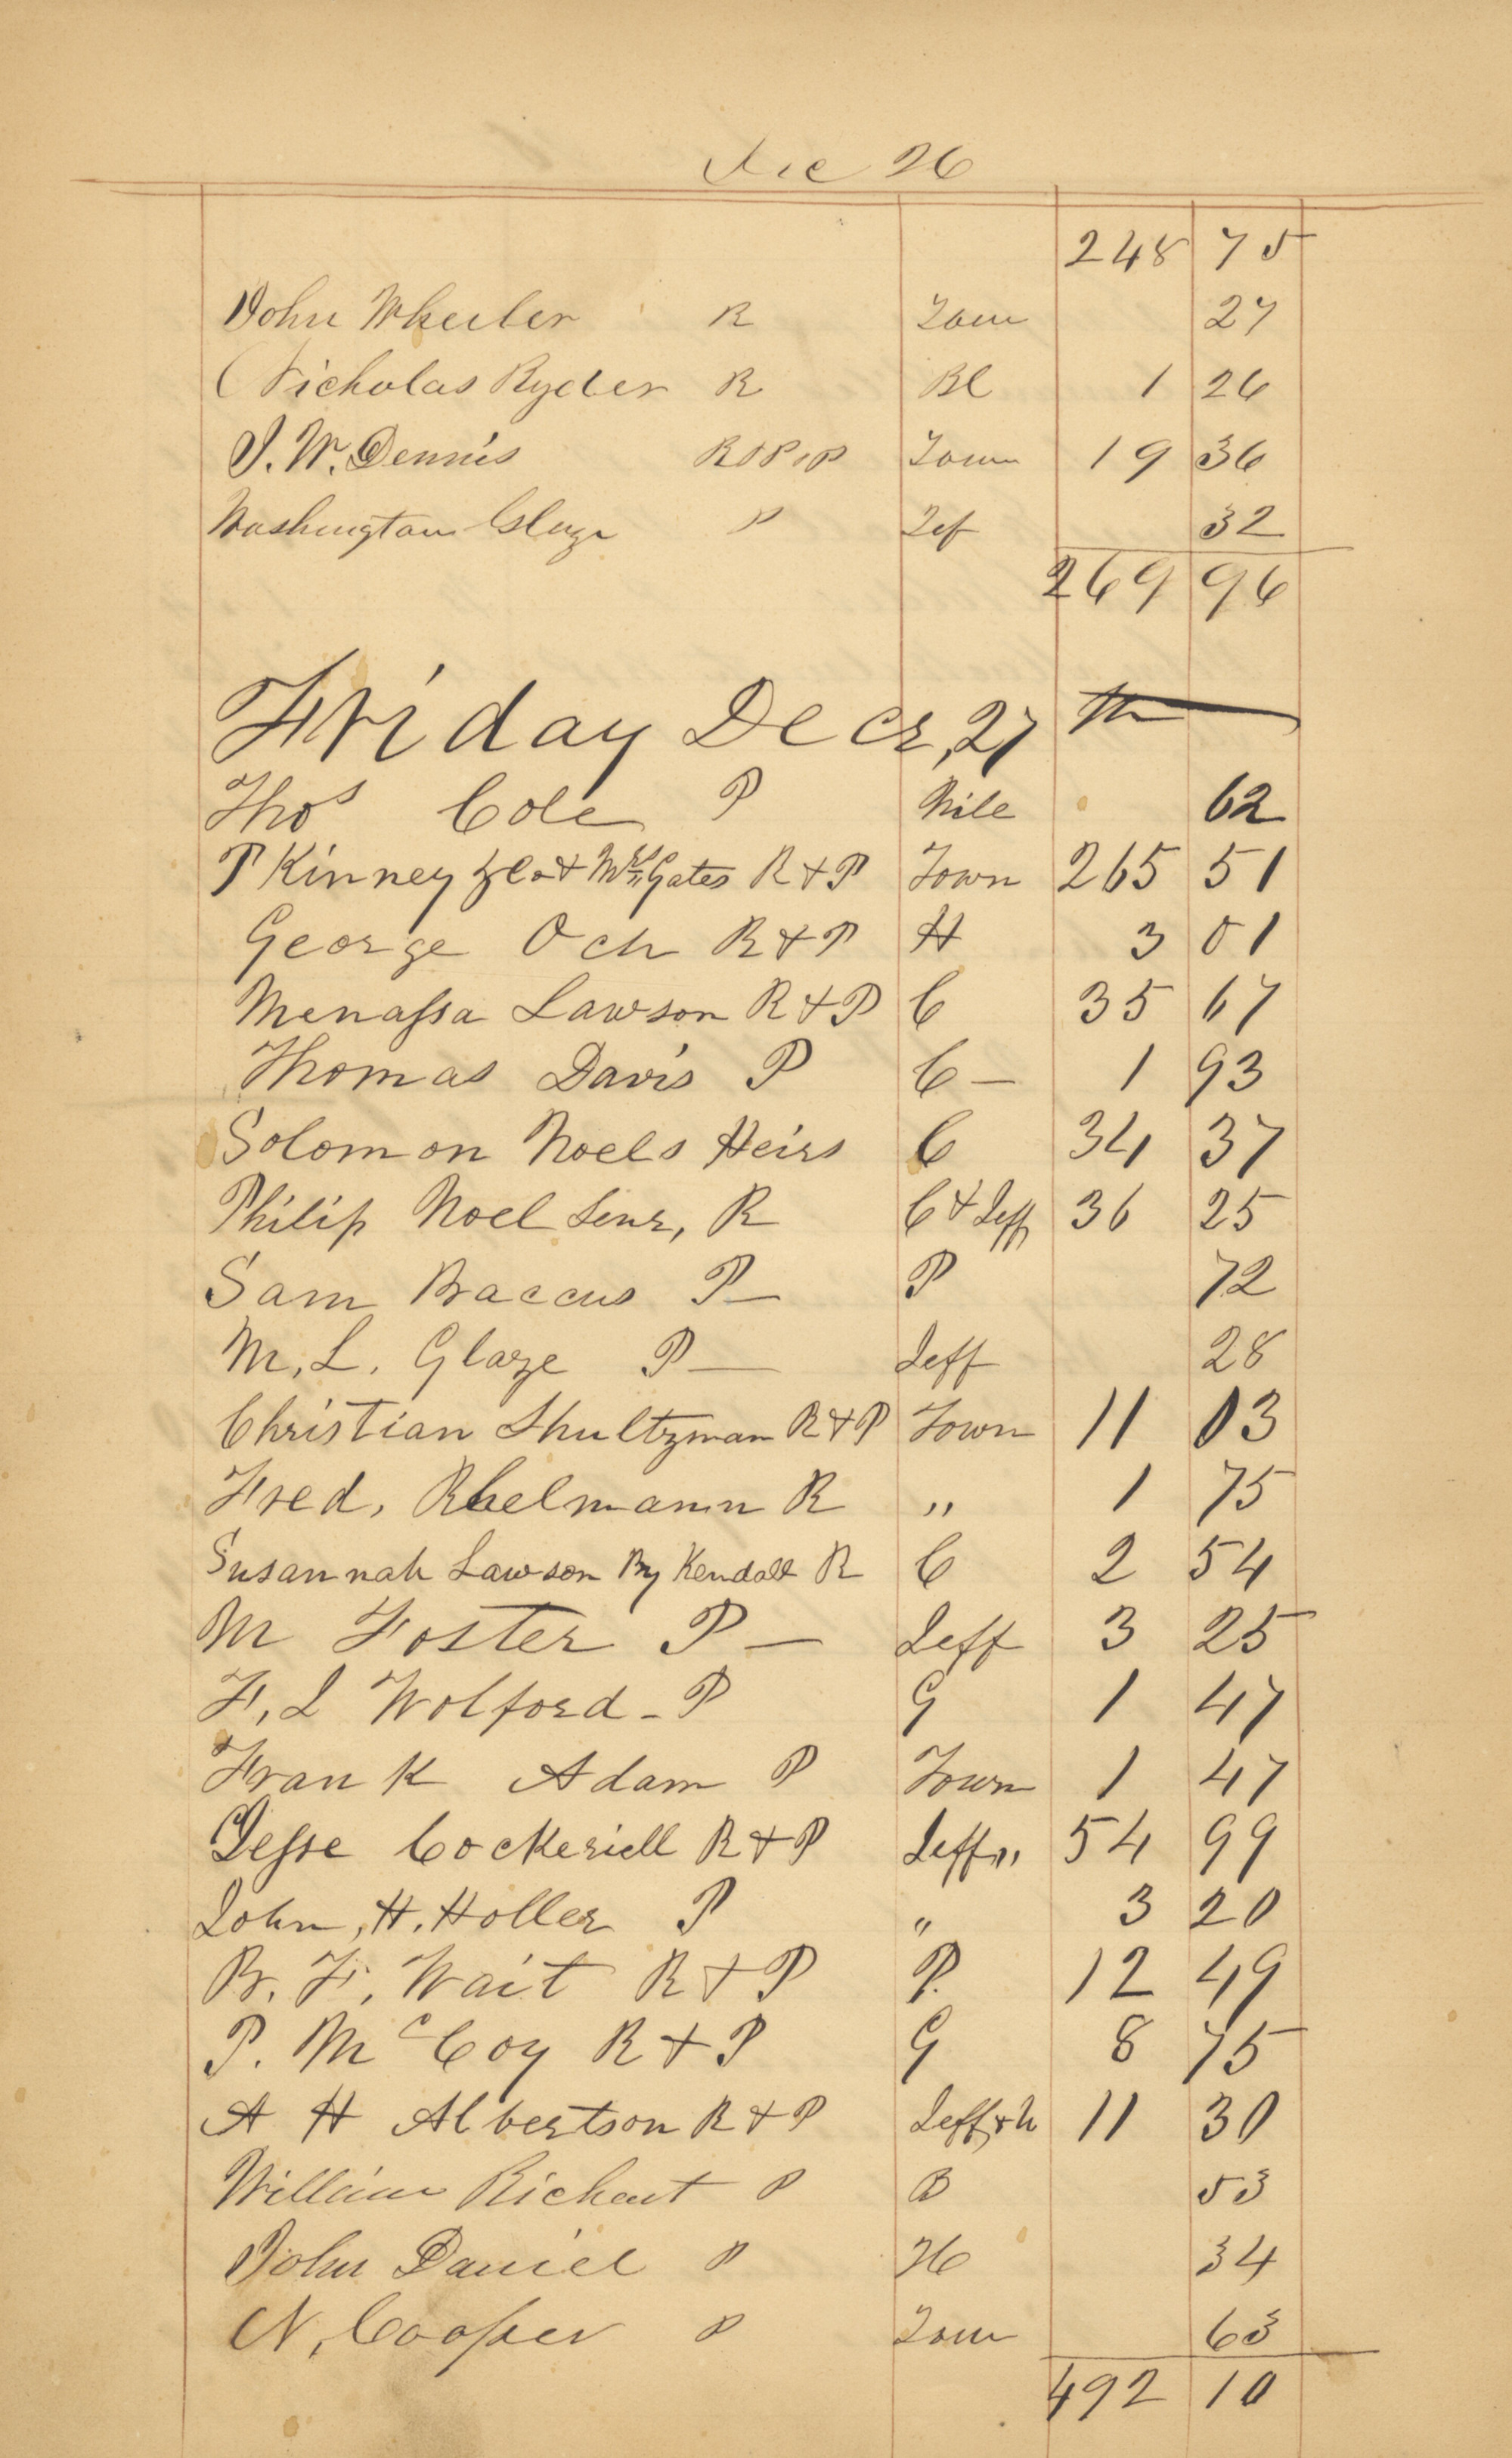 Dec 26
248 75
John Wheeler R Town 27
Nicholas Ryder R Bl 1 26
J. W. Dennis R & P & P Town 19 36
Washington Glaze P Jef 32
269 96
Friday Decr, 27 th
Thos Cole P Nile 62
P Kinney & Co & Mrs Gates R & P Town 265 51
George Och R & P H 3 01
Menassa Lawson R & P C 35 67
Thomas Davis P C — 1 93
Solomon Noels Heirs C 34 37
Philip Noel Senr, R C & Jeff 36 25
Sam Baccus P — P 72
M. L. Glaze P — Jeff 28
Christian Shultzman R & P Town 11 03
Fred, Rhelmann R " 1 75
Susannah Lawson By Kendall R C 2 54
M Foster P — Jeff 3 25
F, J Wolford - P G 1 47
Frank Adam P Town 1 47
Jesse Cockerill R & P Jeff " 54 99
John, H. Holler P " 3 20
B. F. Wait R & P P. 12 49
P. McCoy R & P G 8 75
A H Albertson R & P Jeff & N 11 30
William Richart P B 53
John Daniel P H 34
N, Cooper P Town 63
492 10